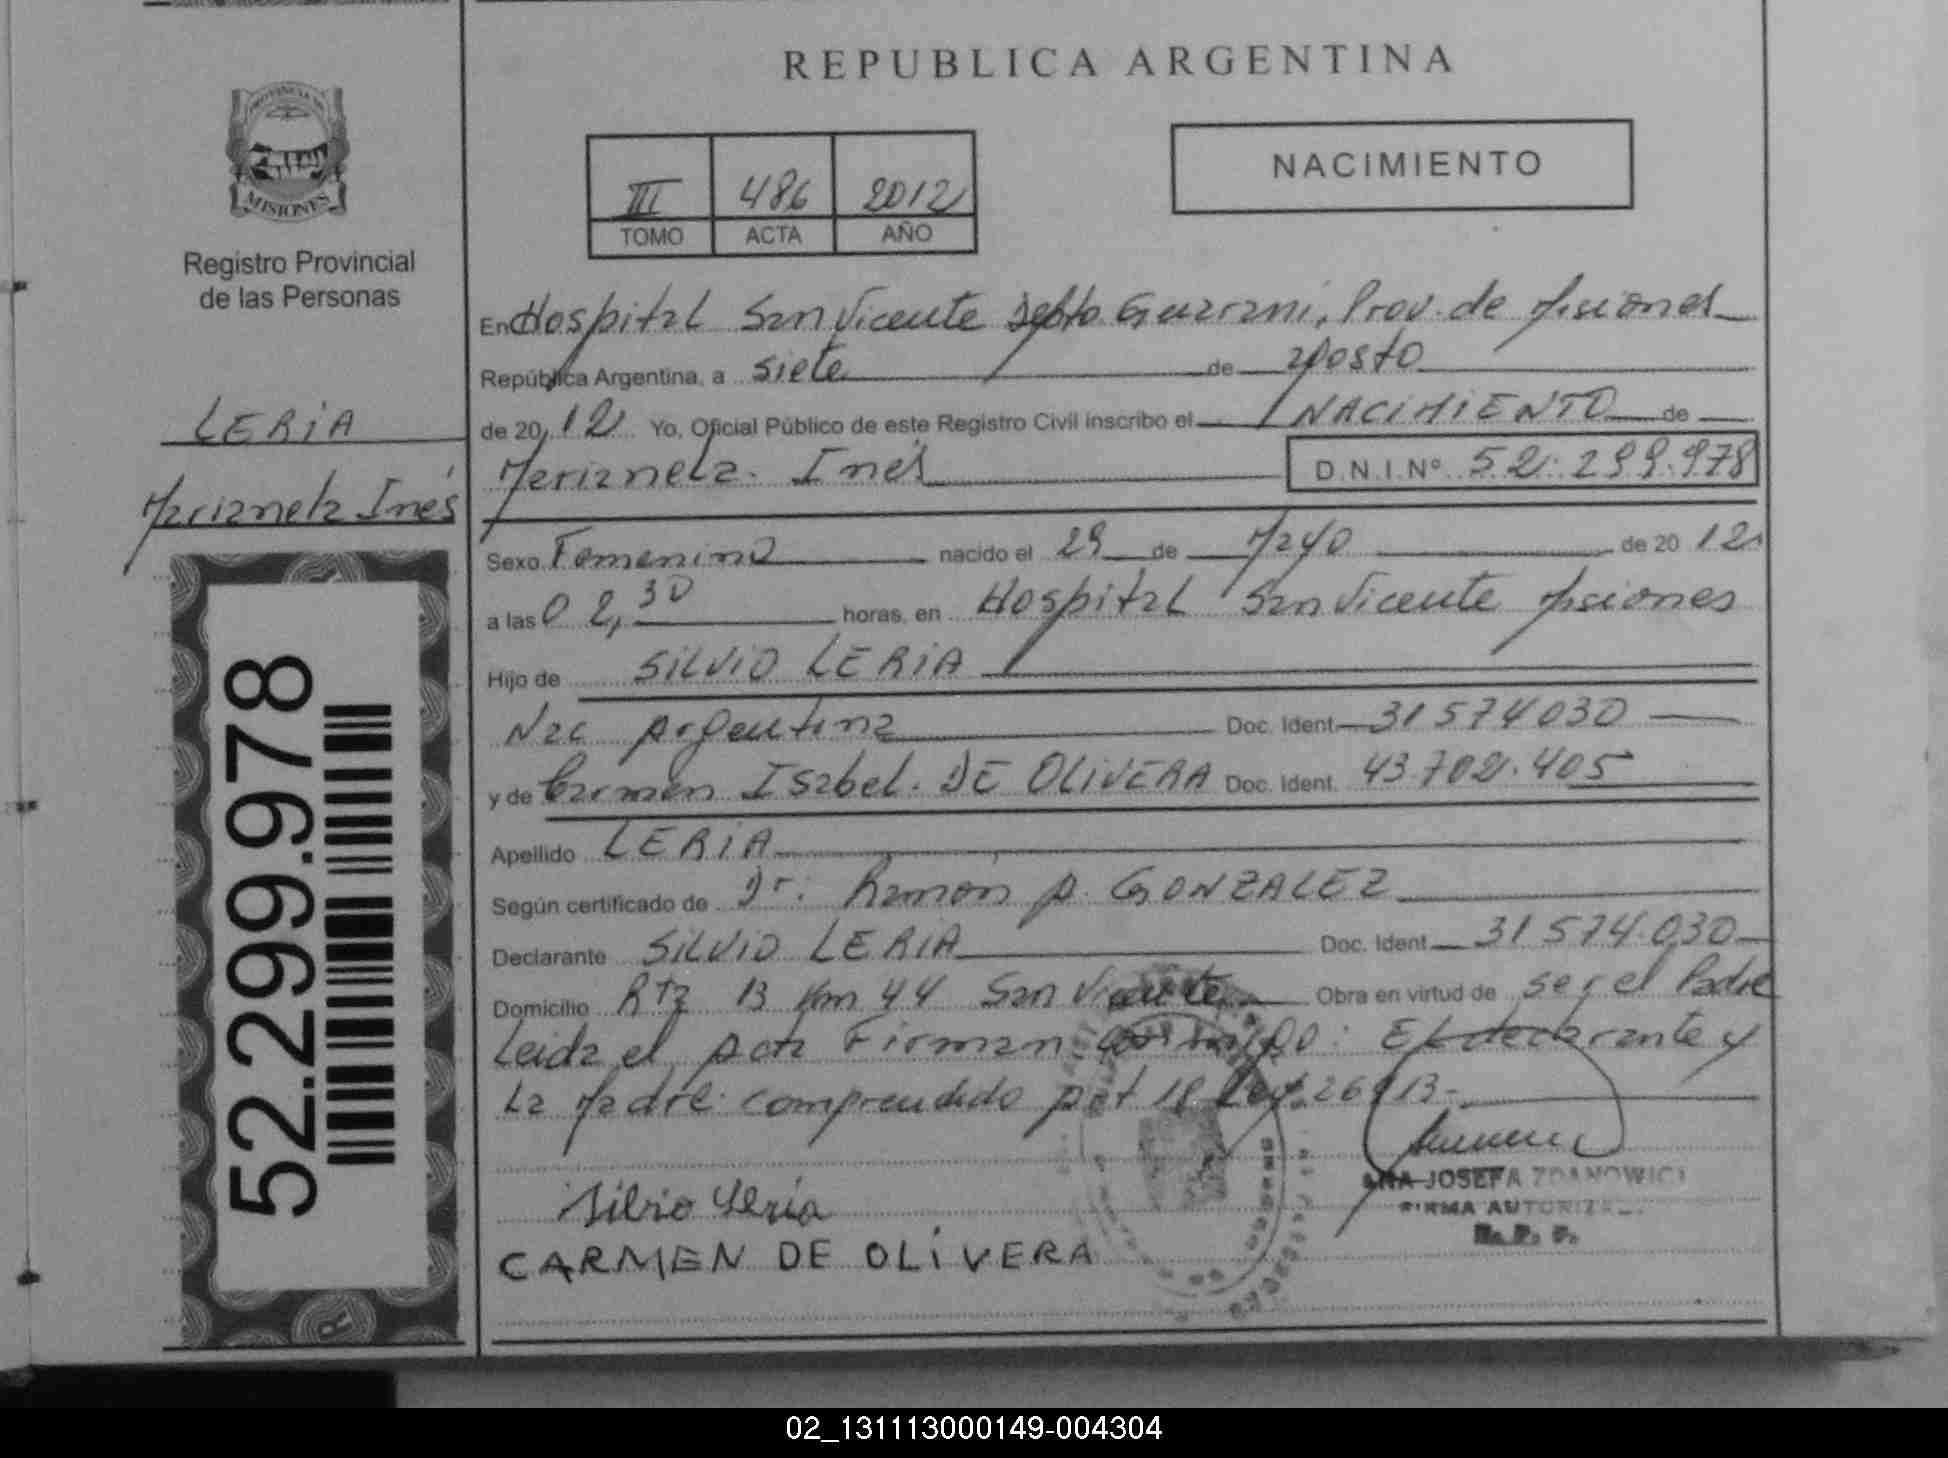 REPUBLICA ARGENTINA
PROVINCIA DE
MISIONES
Registro Provincial
de las Personas
III 486 2012
TOMO ACTA AÑO
NACIMIENTO
LERiA
Marianela Inés
52.299.978
En Hospital San Vicente Depto Guarani, Prov. de Misiones
República Argentina, a siete de agosto
de 20 12 Yo, Oficial Público de este Registro Civil inscribo el NACIMIENTO de
Marianela. Inés D.N.I.Nº 52.299.978
Sexo Femenino nacido el 29 de Mayo de 20 12
a las 02,30 horas, en Hospital San Vicente Misiones
Hijo de SiLViO LERiA
Nac Argentina Doc. Ident 31574030
y de Carmen Isabel. DE OLiVERA Doc. Ident. 43.702.405
Apellido LERiA
Según certificado de Dr: Ramon A. GONZALEZ
Declarante SiLViO LERiA Doc. Ident 31574.030
Domicilio Rta 13 Km 44 San Vicente Obra en virtud de ser el Padre
Leida el acta Firman conmigo: El declarante y
La Madre. comprendido art 18 Ley. 26413-
Silvio Leria
CARMEN DE OLiVERA
ANA JOSEFA ZDANOWICZ
FIRMA AUTORIZADA
R. P. P.
02_131113000149-004304